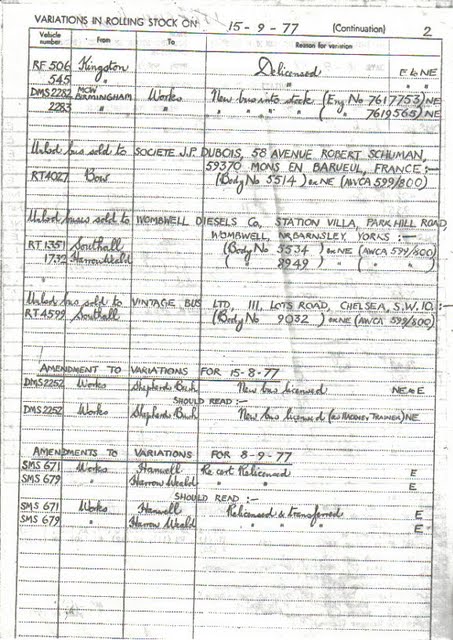 VARIATIONS IN ROLLING STOCK ON 15-9-77 (Continuation) 2
Vehicle number From To Reason for variation
RF 506 Kingston Delicensed E to NE
545 " " " "
DMS2282 MCW BIRMINGHAM Works New bus into stock (Eng. No 7617753) NE
2283 " " " " " " ( " " 7619565) NE
Unlcd bus sold to SOCIETE J.P. DUBOIS, 58 AVENUE ROBERT SCHUMAN,
59370 MONS EN BARUEUL, FRANCE:—
RT4027 Bow (Body No 5514) ex NE (AWCA 599/800)
Unlcd buses sold to WOMBWELL DIESELS Co, STATION VILLA, PARK HILL ROAD,
WOMBWELL, NR. BARNSLEY YORKS:—
RT1351 Southall (Body No 5534) ex NE (AWCA 599/800)
1732 Harrow Weald ( " " 8949) " " ( " " )
Unlcd bus sold to VINTAGE BUS LTD, 111, LOTS ROAD, CHELSEA, S.W.10:—
RT4599 Southall (Body No 9032) ex NE (AWCA 599/800)
AMENDMENT TO VARIATIONS FOR 15-8-77
DMS2252 Works Shepherds Bush New bus licensed NE to E
SHOULD READ:—
DMS2252 Works Shepherds Bush New bus licensed TRAINER) NE
AMENDMENTS TO VARIATIONS FOR 8-9-77
SMS 671 Works Hanwell Re cert Relicensed E
SMS 679 " Harrow Weald " " E
SHOULD READ:—
SMS 671 Works Hanwell Relicensed & transferred E
SMS 679 " Harrow Weald " " " E